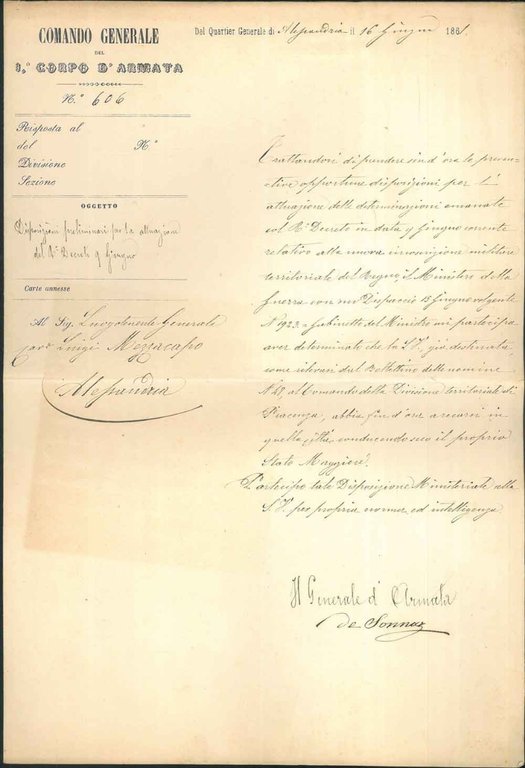 COMANDO GENERALE
DEL
3.º CORPO D'ARMATA
N.º 606
Risposta al
del Nº
Divisione
Sezione
OGGETTO
Disposizioni preliminari per la attuazione
del Rº Decreto 9 Giugno
Carte annesse
Al Sig. Luogotenente Generale
Cavº Luigi Mezzacapo
Alessandria
Del Quartier Generale di Alessandria il 16 Giugno 1861.
Trattandosi di prendere sin d'ora le preven-
tive opportune disposizioni per l'
attuazione delle determinazioni emanate
col Rº Decreto in data 9 Giugno corrente
relativo alla nuova circoscrizione militare
territoriale del Regno, il Ministero della
Guerra con suo Dispaccio 13 Giugno volgente
Nº 1923 Gabinetto del Ministro mi partecipa
aver determinato che la S.V. già destinata,
come rilevasi dal Bollettino delle nomine
Nº 28, al Comando della Divisione territoriale di
Piacenza, abbia fin d'ora a recarsi in
quella città conducendo seco il proprio
Stato Maggiore.
Partecipo tale Disposizione Ministeriale alla
S.V. per propria norma ed intelligenza
Il Generale d'Armata
de Sonnaz